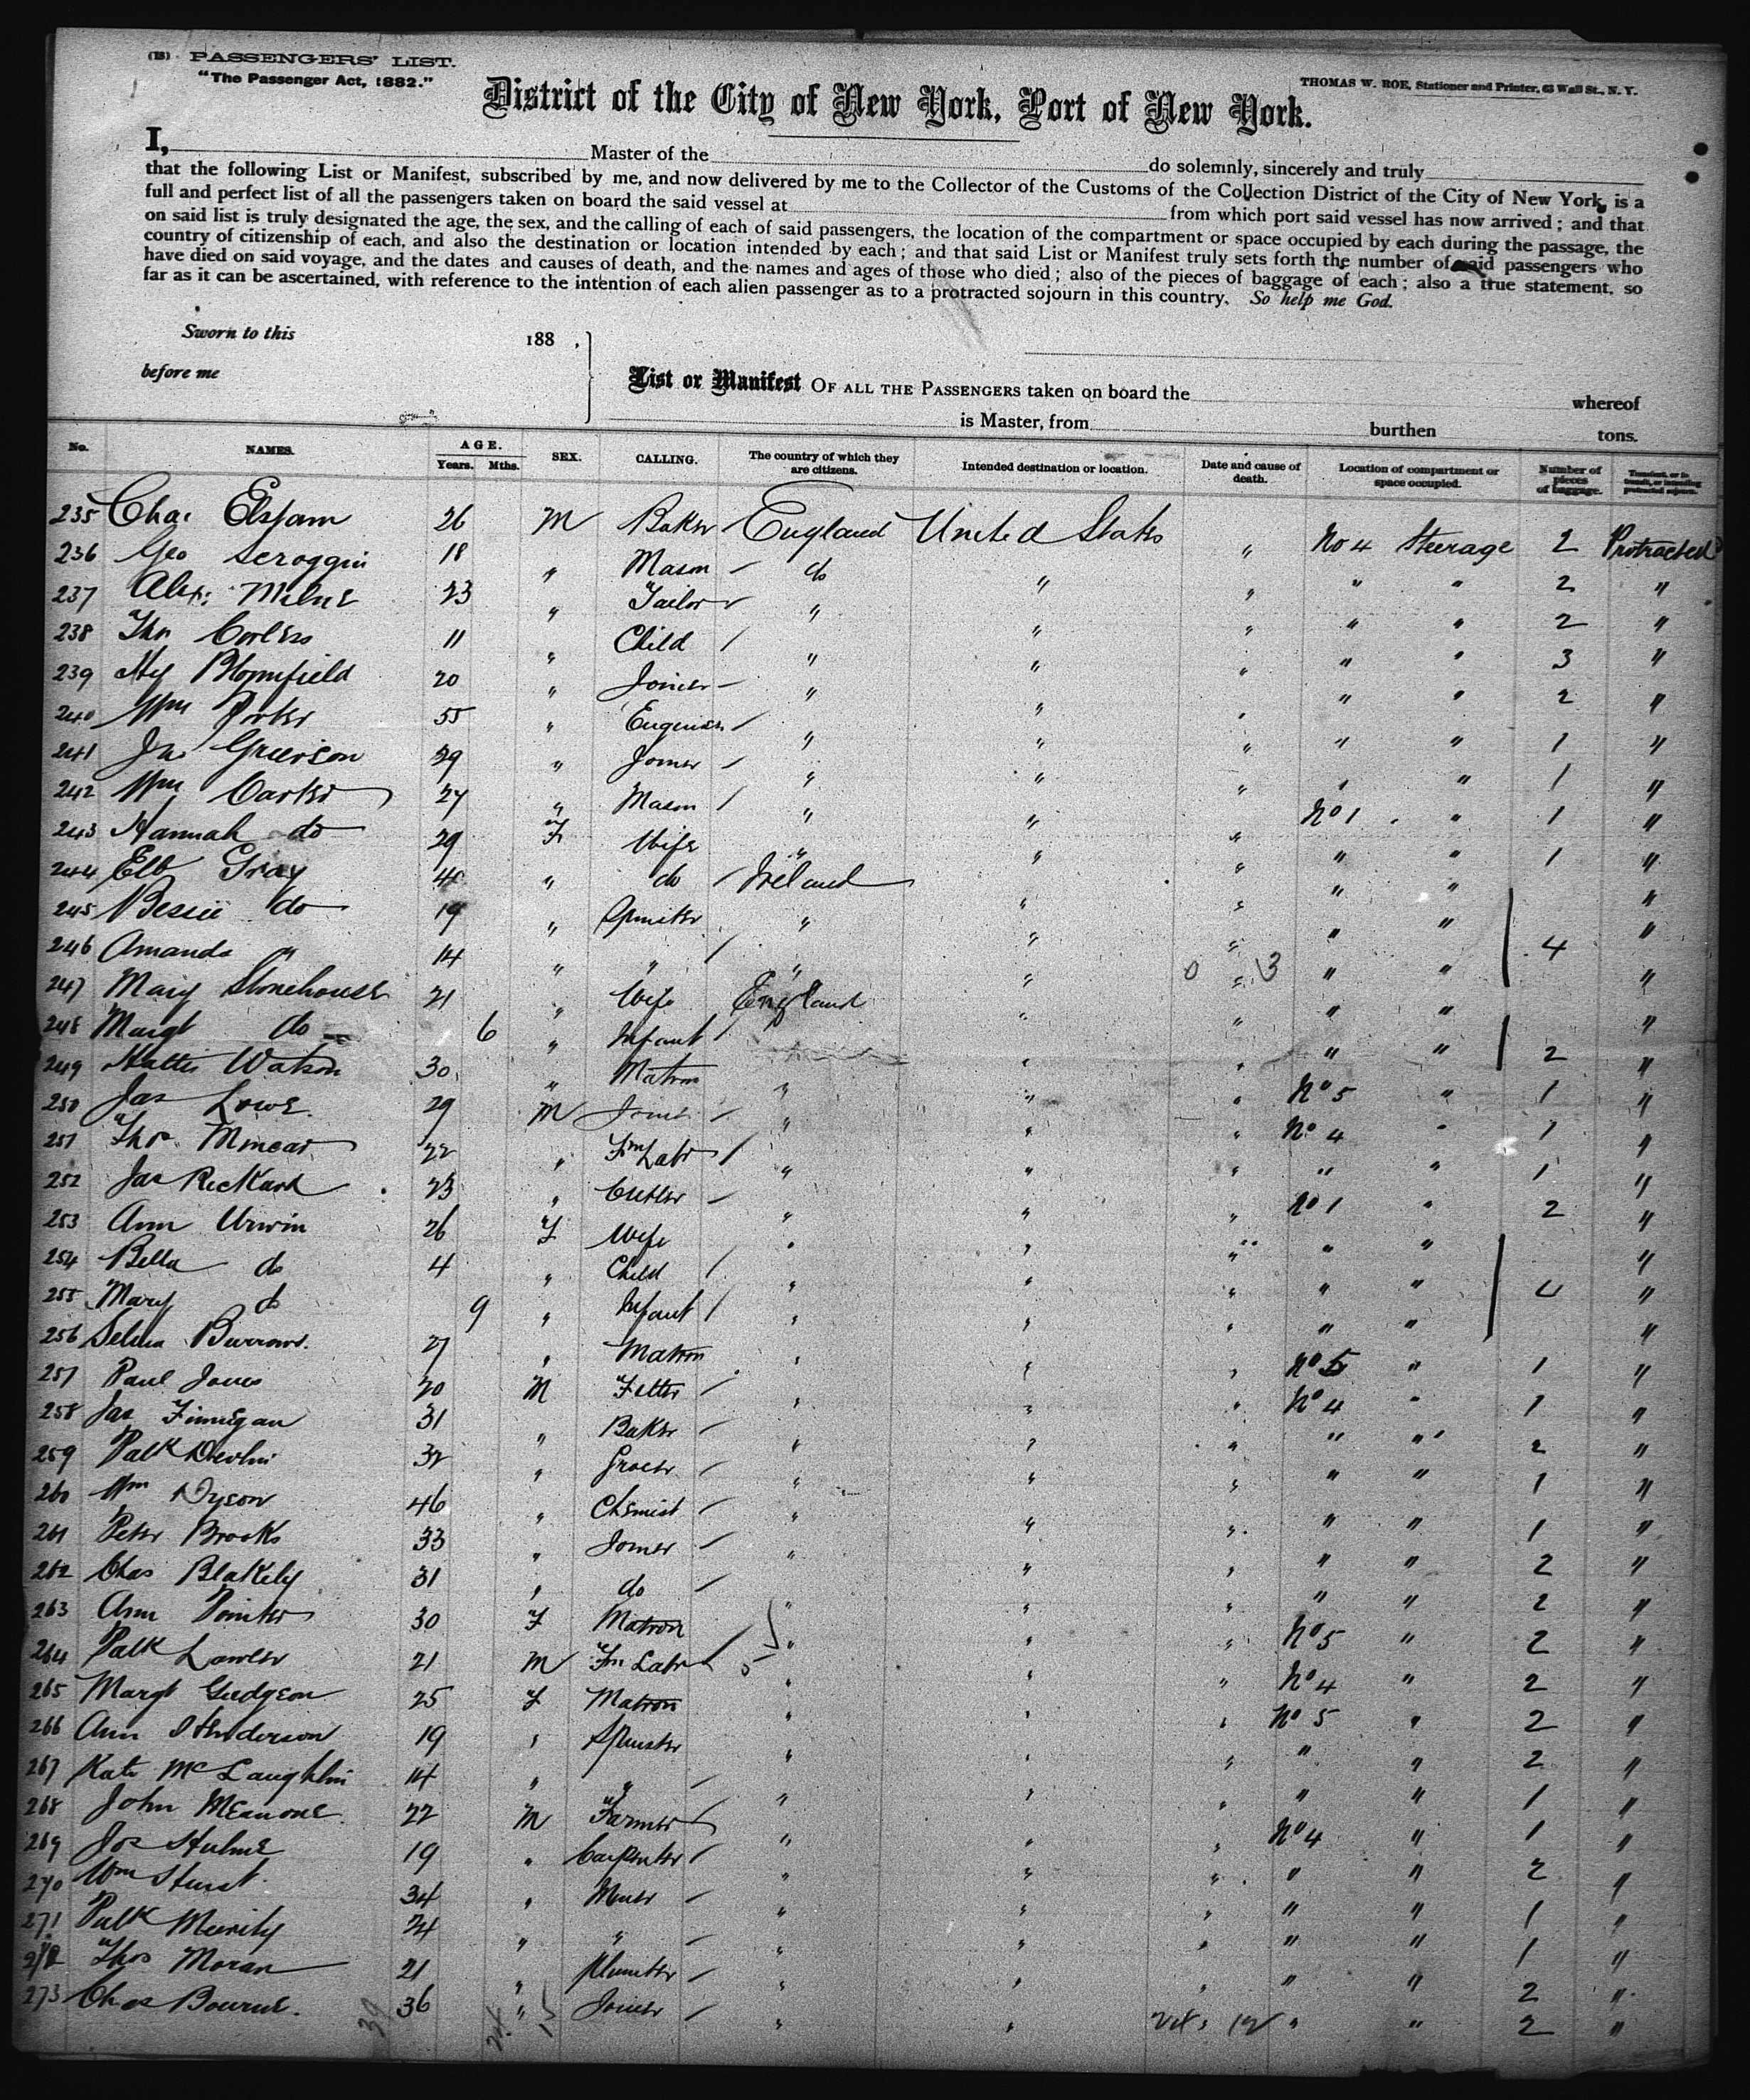 (18) PASSENGERS' LIST.
"The Passenger Act, 1882."
THOMAS W. ROE, Stationer and Printer, 63 Wall St., N. Y.
District of the City of New York, Port of New York.
I, Master of the do solemnly, sincerely and truly
that the following List or Manifest, subscribed by me, and now delivered by me to the Collector of the Customs of the Collection District of the City of New York, is a
full and perfect list of all the passengers taken on board the said vessel at from which port said vessel has now arrived; and that
on said list is truly designated the age, the sex, and the calling of each of said passengers, the location of the compartment or space occupied by each during the passage, the
country of citizenship of each, and also the destination or location intended by each; and that said List or Manifest truly sets forth the number of said passengers who
have died on said voyage, and the dates and causes of death, and the names and ages of those who died; also of the pieces of baggage of each; also a true statement, so
far as it can be ascertained, with reference to the intention of each alien passenger as to a protracted sojourn in this country. So help me God.
Sworn to this 188 ,
before me
List or Manifest OF ALL THE PASSENGERS taken on board the whereof
is Master, from burthen tons.
No. NAMES. AGE. Years. Mths. SEX. CALLING. The country of which they are citizens. Intended destination or location. Date and cause of death. Location of compartment or space occupied. Number of pieces of baggage. Transient, or in transit, or intending protracted sojourn.
235 Chas Elsfam 26 M Baker England United States " No 4 Steerage 2 Protracted
236 Geo Scroggin 18 " Mason do " " " " 2 "
237 Alex: Milne 23 " Tailor " " " " " 2 "
238 Thos Corless 11 " Child " " " " " 3 "
239 Hy Blomfield 20 " Joiner " " " " " 2 "
240 Wm Porter 55 " Engineer " " " " " 1 "
241 Jas Grierson 29 " Joiner " " " " " 1 "
242 Wm Carter 27 " Mason " " " No 1 " 1 "
243 Hannah do 29 F Wife " " " " " 1 "
244 Elb Gray 40 " do Ireland " " " " "
245 Bessie do 19 " Spinster " " " " " "
246 Amanda " 14 " " " " " " " 4 "
247 Mary Stonehouse 21 " Wife England " " " " "
248 Margt do 6 " Infant " " " " 2 "
249 Hattie Watson 30 " Matron " " " No 5 " 1 "
250 Jas Lowe 29 M Joiner " " " No 4 " 1 "
251 Thos Minear 22 " Fm Labr " " " " " 1 "
252 Jas Reckard 23 " Cutler " " " No 1 " 2 "
253 Ann Urwin 26 F Wife " " " " " "
254 Bella do 4 " Child " " " " " 4 "
255 Mary do 9 " Infant " " " " " "
256 Selina Burrows. 27 " Matron " " " No 5 " 1 "
257 Paul Jones 20 M Fitter " " " No 4 " 1 "
258 Jas Finnigan 31 " Baker " " " " " 2 "
259 Patk Devlin 32 " Grocer " " " " " 1 "
260 Wm Dyson 46 " Chemist " " " " " 1 "
261 Peter Brooks 33 " Joiner " " " " " 2 "
262 Chas Blakely 31 " do " " " " " 2 "
263 Ann Pointer 30 F Matron " " " No 5 " 2 "
264 Patk Lawler 21 M Fm Labr " " " No 4 " 2 "
265 Margt Gudgeon 25 F Matron " " " No 5 " 2 "
266 Ann Henderson 19 " Spinster " " " " " 2 "
267 Kate McLaughlin 14 " " " " " " " 1 "
268 John 22 M Farmer " " " No 4 " 1 "
269 Jos Hulme 19 " Carpenter " " " " " 2 "
270 Wm Hurst 34 " Miner " " " " " 1 "
271 Patk 24 " " " " " " " 1 "
272 Thos Moran 21 " Plumber " " " " " 2 "
273 Chas Bourne. 36 " Joiner " " " " " 2 "